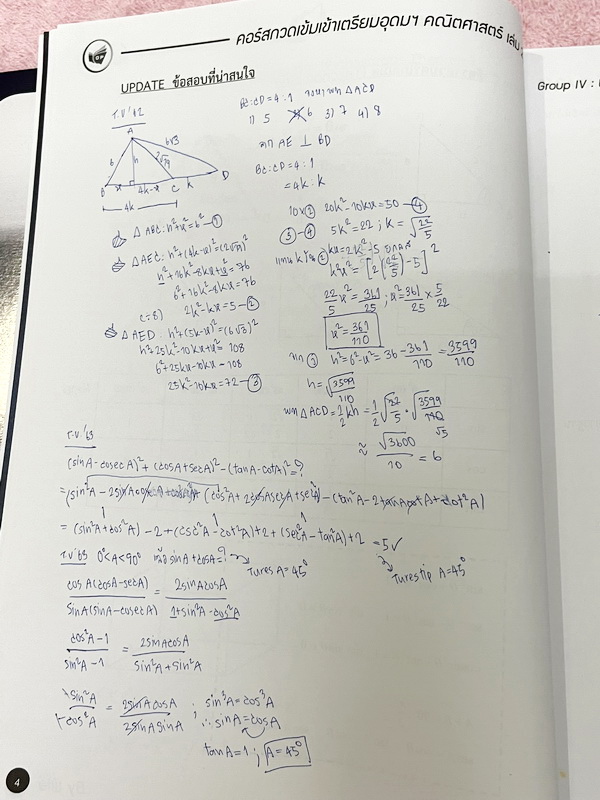 คอร์สกวดเข้มเข้าเตรียมอุดมฯ คณิตศาสตร์ เล่ม
Group IV :
UPDATE ข้อสอบที่น่าสนใจ
BC:CD = 4:1 จงหาพท △ACD
1) 5 2) 6 3) 7 4) 8
ต.อ.'62
A
6√3
6
h
2√19
B
x
4k-x
C
k
D
4k
ลาก AE ⊥ BD
BC:CD = 4:1
= 4k:k
△ ABE: h²+x²=6² —①
△ AEC: h²+(4k-x)²=(2√19)²
h²+16k²-8kx+x²=76
6²+16k²-8kx=76
(÷8) 2k²-kx=5 —②
△ AED: h²+(5k-x)²=(6√3)²
h²+25k²-10kx+x²=108
6²+25k²-10kx=108
25k²-10kx=72 —③
10×② 20k²-10kx=50 —④
③-④ 5k²=22 ; k=√22/5
kx=2k²-5
k²x²=[2(22/5)-5]²
22/5 x²=361/25 ; x²=361/25 × 5/22
x²=361/110
จาก ① h²=6²-x²=36-361/110=3599/110
h=√3599/110
พท △ACD=1/2 kh =1/2 √22/5 · √3599/110
≈ √3600/10 = 6
ต.อ.'63
(sinA-cosecA)²+(cosA+secA)²-(tanA-cotA)²=?
=(sin²A-2sinAcosecA+cosec²A)+(cos²A+2cosAsecA+sec²A)-(tan²A-2tanAcotA+cot²A)
=(sin²A+cos²A)-2+(csc²A-cot²A)+2+(sec²A-tan²A)+2 =5✓
ต.อ.'63 0°<A<90° sinA+cosA=?
A=45°
A=45°
cosA(cosA-secA)/sinA(sinA-cosecA) = 2sinAcosA/1+sin²A-cos²A
cos²A-1/sin²A-1 = 2sinAcosA/sin²A+sin²A
-sin²A/-cos²A = 2sinAcosA/2sinAsinA ; sin³A=cos³A
∴ sinA=cosA
tanA=1 ; A=45°
4